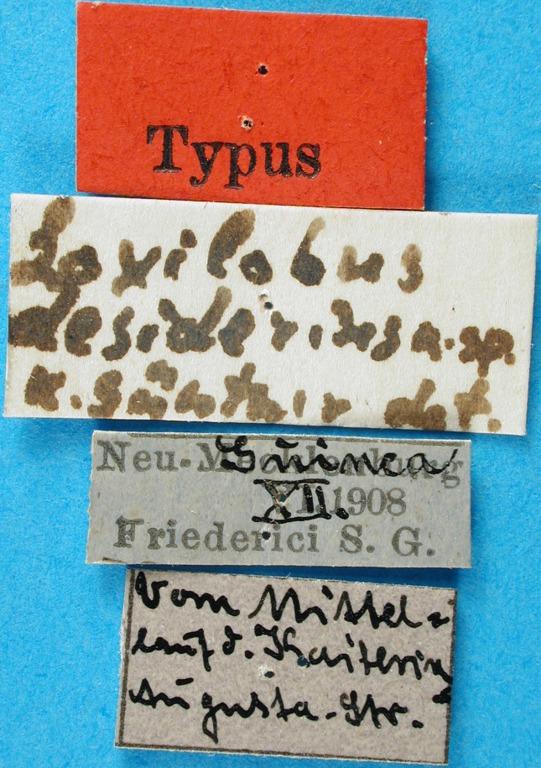 Typus
Loxilobus
desiderius n. sp.
K. Günther det.
Neu-Mecklenburg
Guinea
XII. 1908
Friederici S. G.
Vom Mittel-
lauf d. Kaiserin
Augusta-Str.